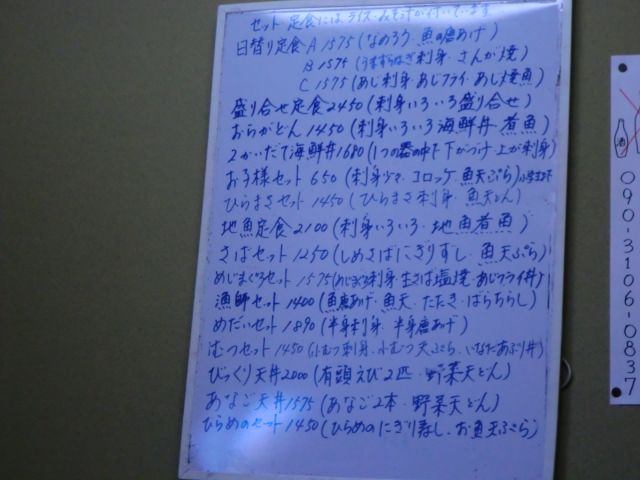 セット定食にはライス、みそ汁が付いています
日替り定食A 1575(なめろう・魚の唐あげ)
B 1575(うまずらはぎ刺身・さんが焼)
C 1575(あじ刺身・あじフライ・あじ焼魚)
盛り合せ定食2450(刺身いろいろ盛り合せ)
おらがどん1450(刺身いろいろ海鮮丼・煮魚)
2かいだて海鮮丼1680(1つの器の中下がづけ上が刺身)
お子様セット650(刺身少々・コロッケ・魚天ぷら)
ひらまさセット1450(ひらまさ刺身・魚天どん)
地魚定食2100(刺身いろいろ・地魚煮魚)
さばセット1250(しめさばにぎりずし・魚天ぷら)
めじまぐろセット1575(めじまぐろ刺身・生さば塩焼・あじフライ丼)
漁師セット1400(魚唐あげ・魚天・たたき・ばらちらし)
めだいセット1890(半身刺身・半身唐あげ)
むつセット1450(小むつ刺身・小むつ天ぷら・いなだあぶり丼)
びっくり天丼2000(有頭えび2匹・野菜天どん)
あなご天丼1575(あなご2本・野菜天どん)
ひらめのセット1450(ひらめのにぎり寿し・お魚天ぷら)
酒
090-3106-0837